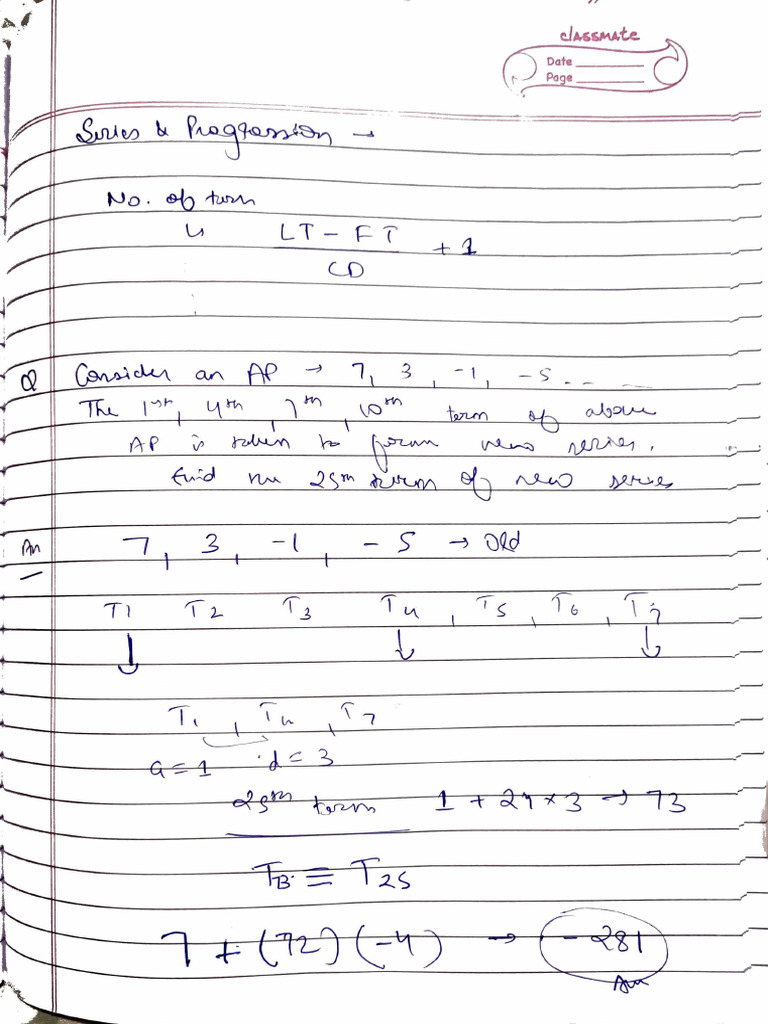 classmate
Date
Page
Series & Progression →
No. of term
LT - FT
+ 1
CD
Q Consider an AP → 7, 3, -1, -5 . . .
The 1st, 4th, 7th, 10th term of above
AP is taken to form new series.
find the 25th term of new series
An 7, 3, -1, -5 → Old
T1 T2 T3 T4, T5, T6, T7
↓ ↓ ↓
T1, T4, T7
a = 1 d = 3
25th term 1 + 24 × 3 → 73
≡ T25
7 + (72) (-4) → -281
An